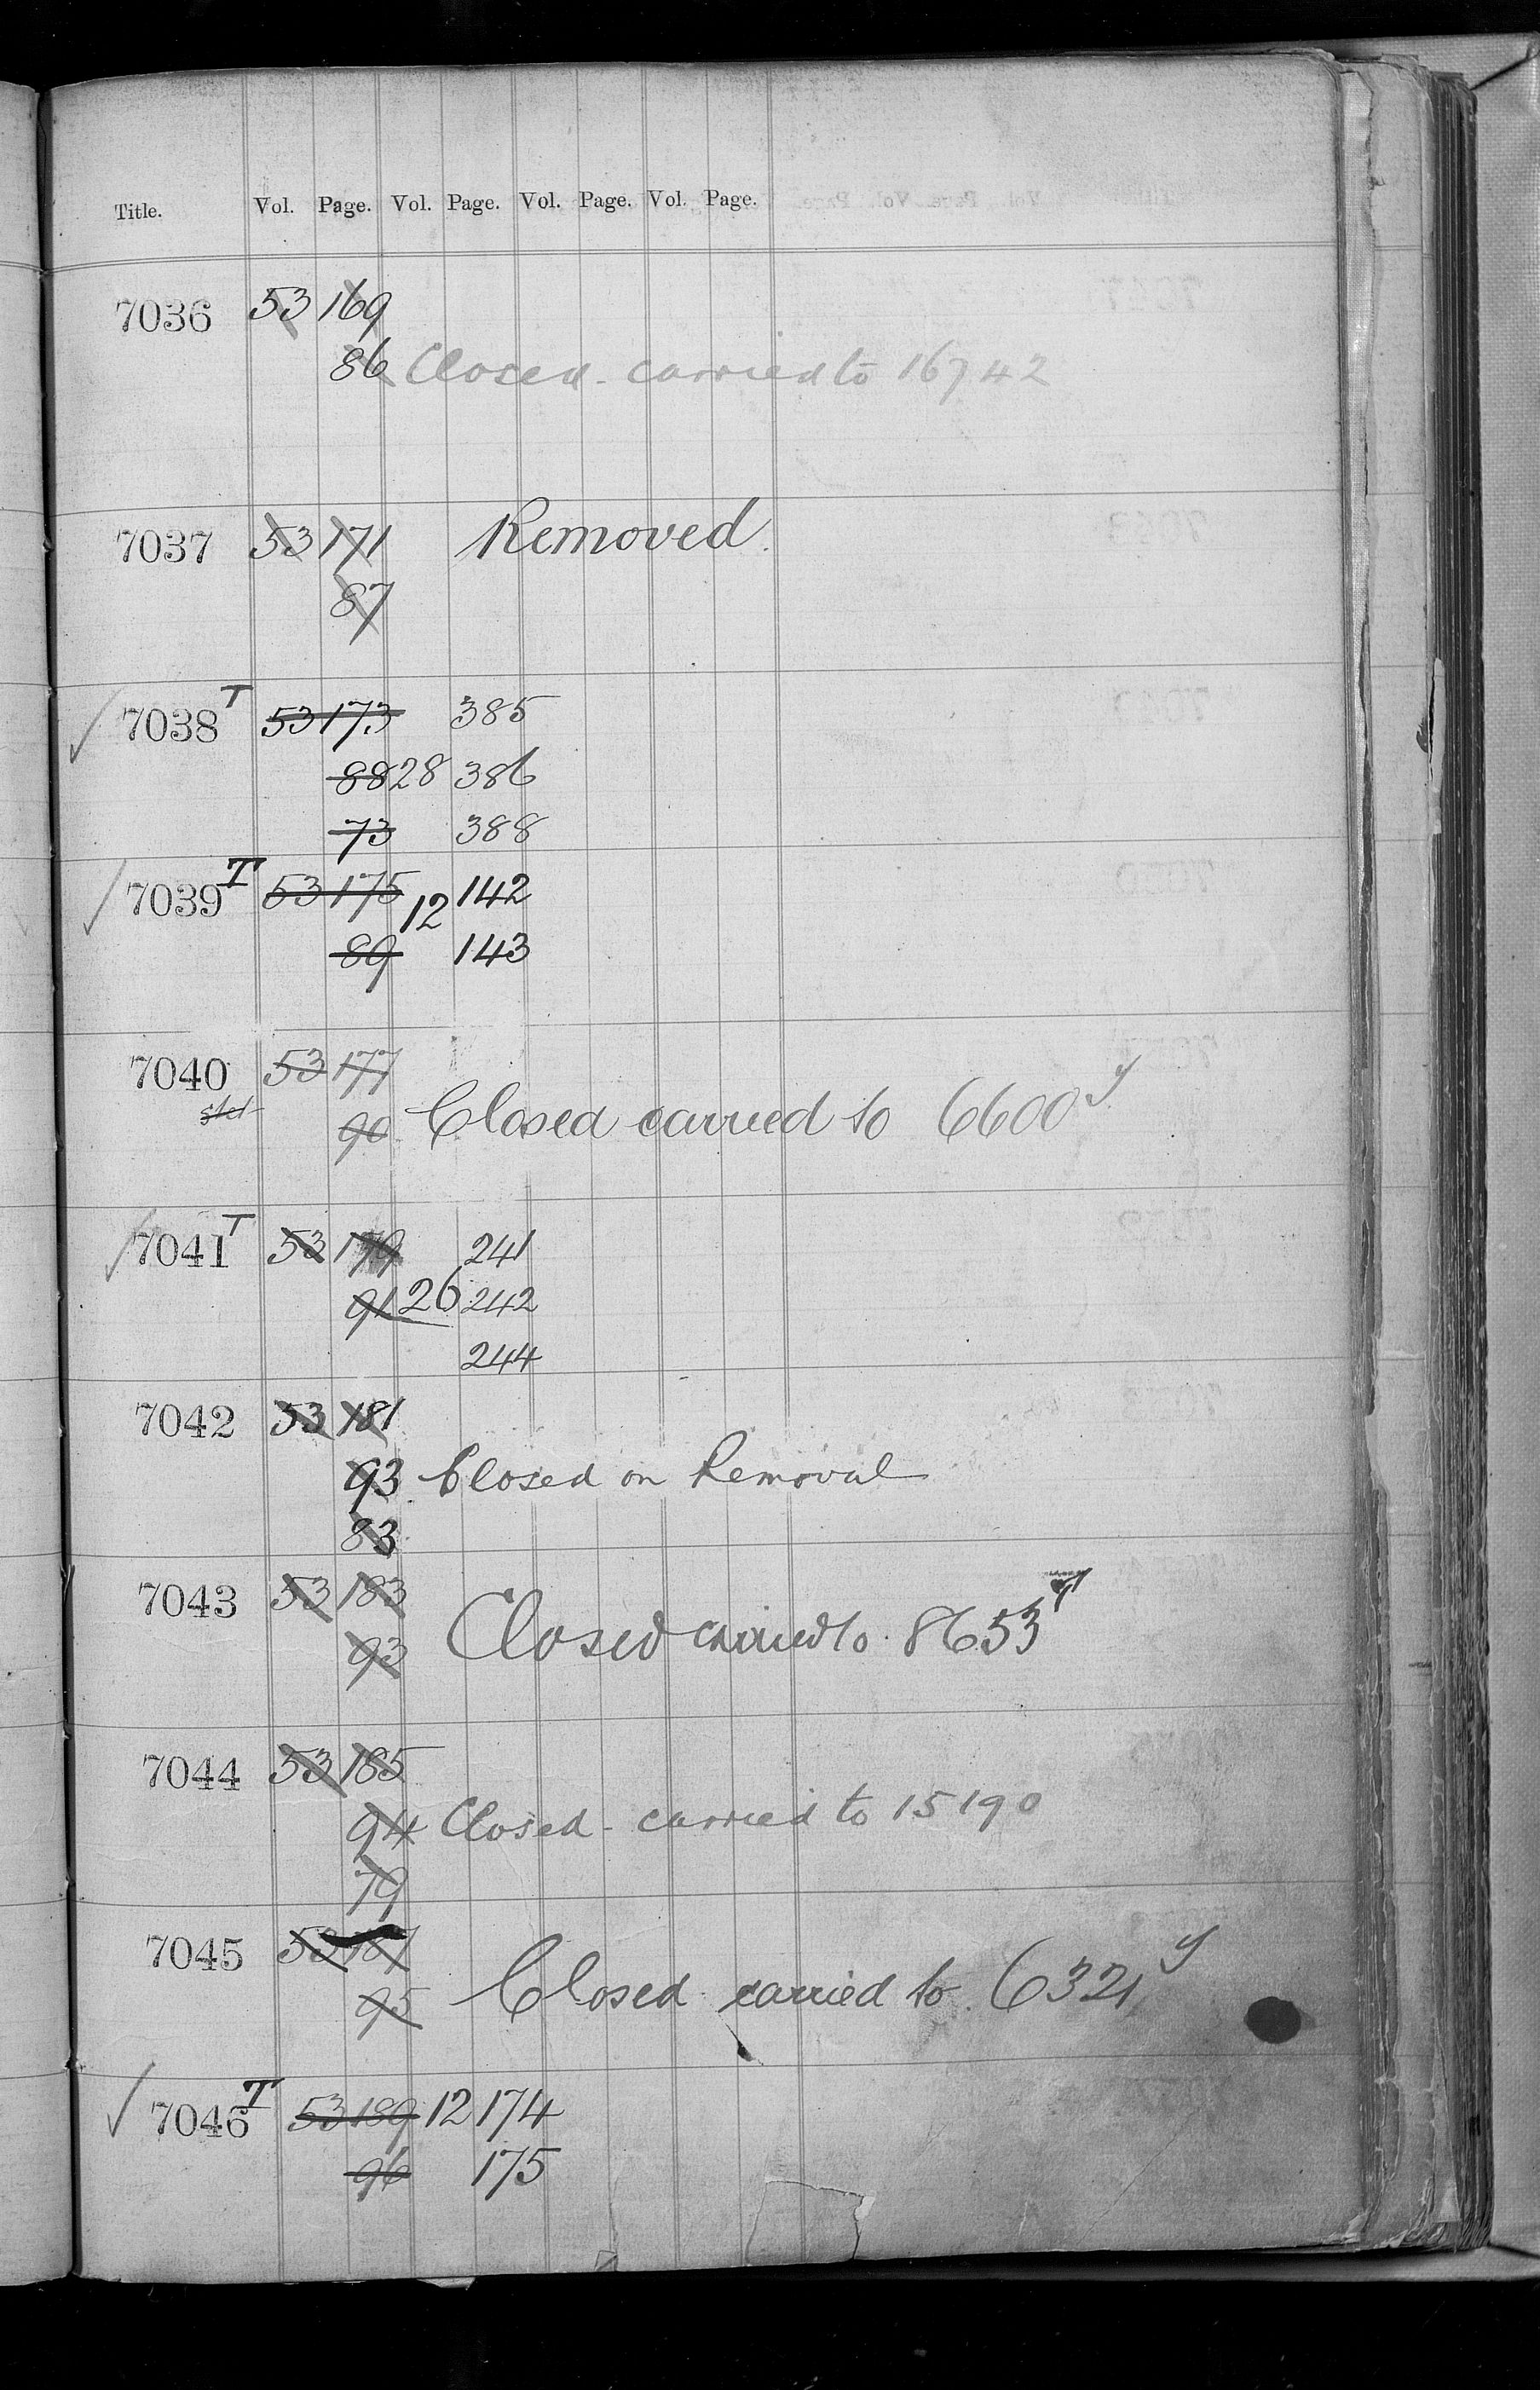 Title. Vol. Page. Vol. Page. Vol. Page. Vol. Page.
7036 53 169
86 Closed - carried to 16742
7037 53 171 Removed.
87
7038 T 53 173 385
88 28 386
73 388
7039 T 53 175 12 142
89 143
7040 53 177
90 Closed carried to 6600 y
7041 T 53 179 241
91 26 242
244
7042 53 181
93 Closed on Removal
83
7043 53 183
93 Closed carried to 8653 y
7044 53 185
94 Closed - carried to 15190
79
7045 53 187
95 Closed carried to 6321 y
7046 T 53 189 12 174
96 175